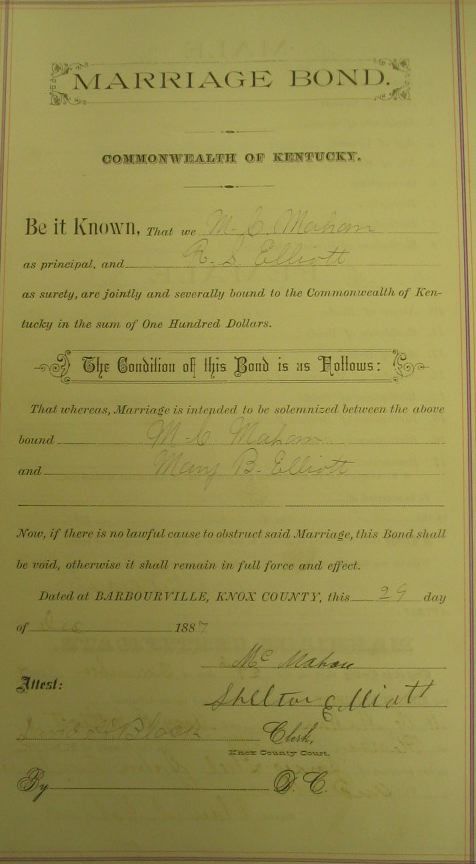 MARRIAGE BOND.
COMMONWEALTH OF KENTUCKY.
Be it Known, That we M. C. Mahan
as principal, and R. S. Elliott
as surety, are jointly and severally bound to the Commonwealth of Ken-
tucky in the sum of One Hundred Dollars.
The Condition of this Bond is as Follows:
That whereas, Marriage is intended to be solemnized between the above
bound M. C. Mahan
and Mary B. Elliott
Now, if there is no lawful cause to obstruct said Marriage, this Bond shall
be void, otherwise it shall remain in full force and effect.
Dated at BARBOURVILLE, KNOX COUNTY, this 29 day
of Dec 1887
Mc Mahan
Attest:
Shelton Elliott
Black Clerk,
Knox County Court.
By D. C.